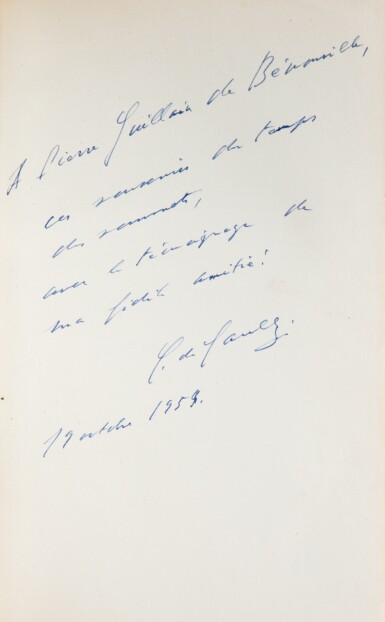 A Pierre Guillain de Bénouville,
ces souvenirs du temps
des sommets,
avec le témoignage de
ma fidèle amitié!
C. de Gaulle.
19 octobre 1959.